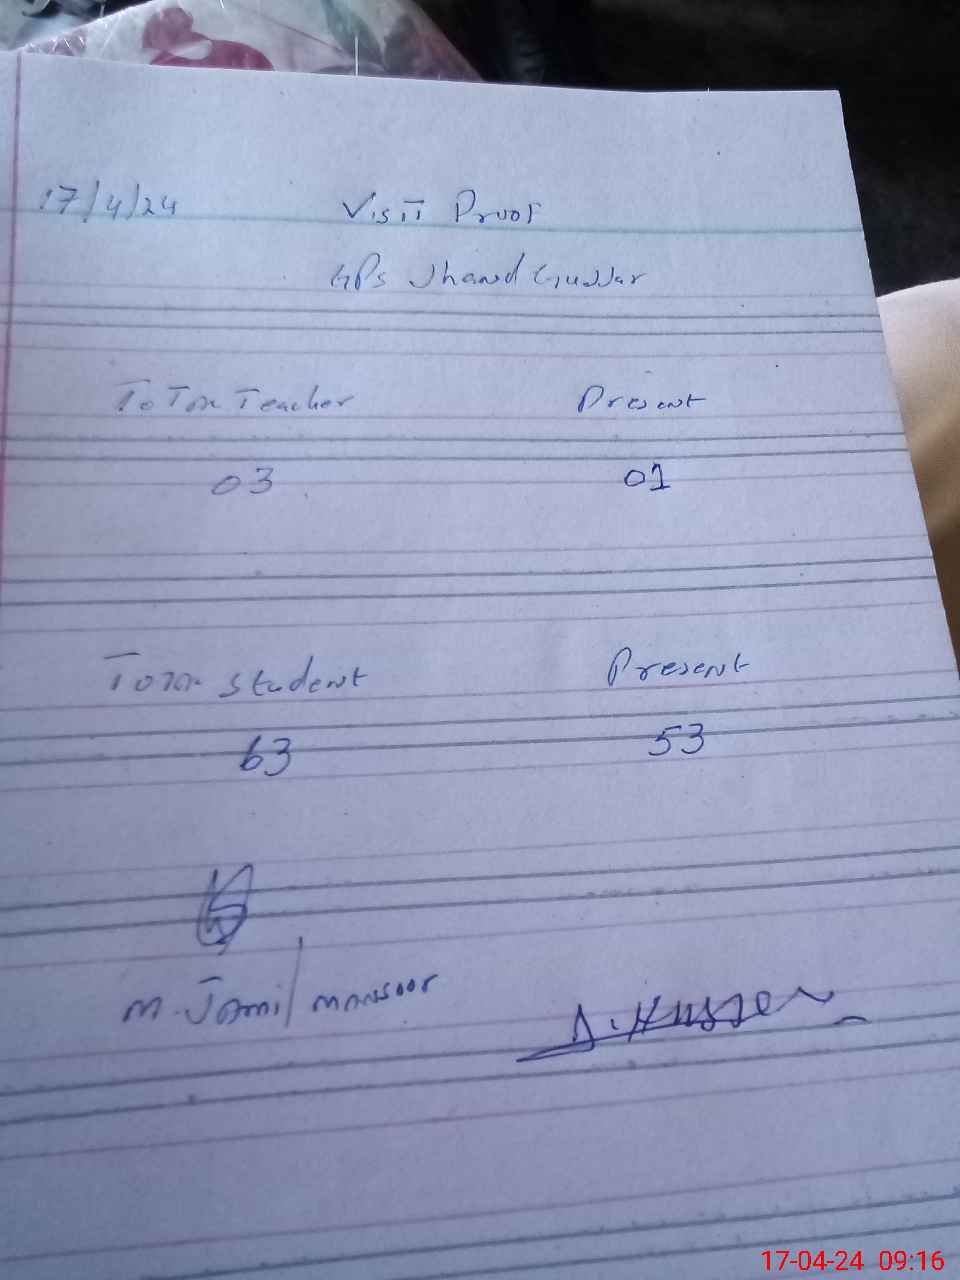 17/4/24 Visit Proof
GPs Jhand Gujjar
Total Teacher Present
03 01
Total Student Present
63 53
M. Jamil Mansoor
A. Hussen
17-04-24 09:16